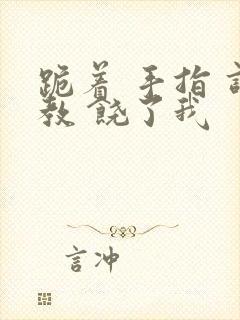 跪着 手指
教 饶了我
言冲